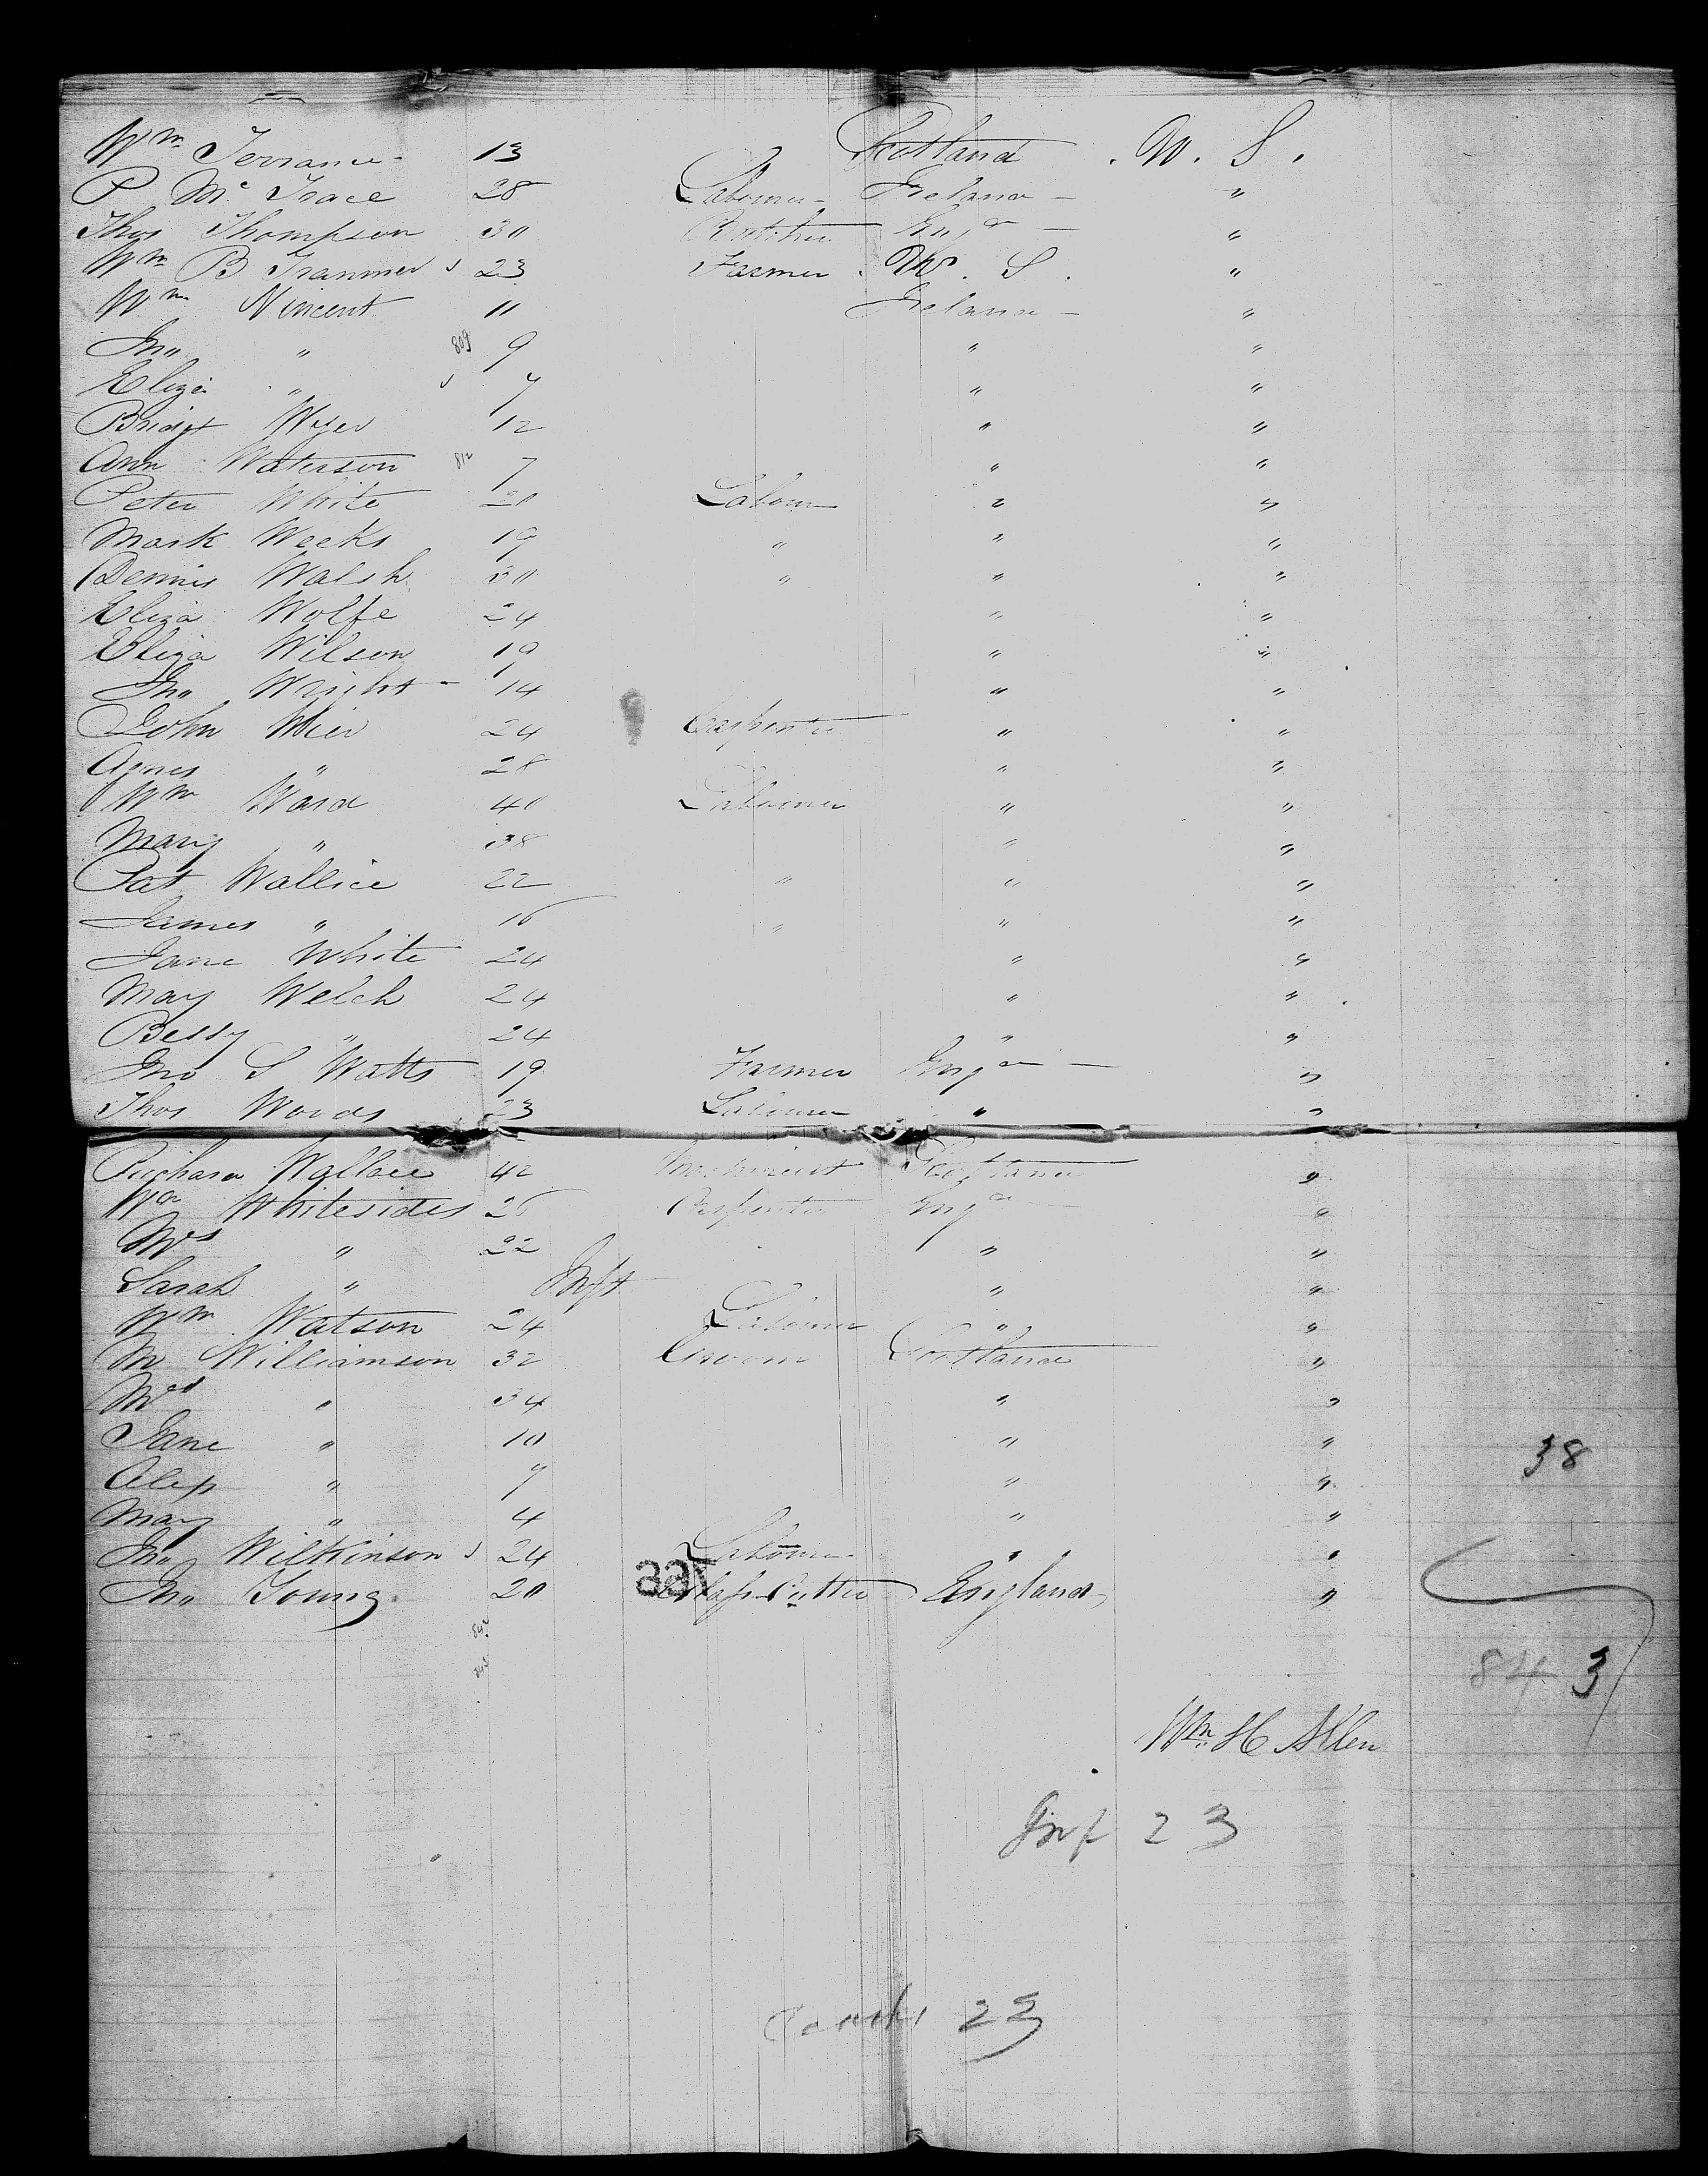 Wm Torrance 13 Scotland U. S.
P Mc Trace 28 Labourer Ireland "
Thos Thompson 30 Eng d "
Wm B Tranmer 23 Farmer U. S. "
Wm Vincent 11 Ireland "
Jno " 809 9 " "
Eliza " 7 " "
Bridgt Wyer 12 " "
Ann Waterson 812 7 " "
Peter White 20 Labourer " "
Mark Weeks 19 " " "
Dennis Walsh 30 " " "
Eliza Wolfe 24 " "
Eliza Wilson 19 " "
Jno Wright 14 " "
John Weir 24 Carpenter " "
Agnes " 28 " "
Wm Ward 40 Labourer " "
Mary " 38 " "
Pat Wallice 22 " " "
James " 16 " " "
Jane White 24 " "
Mary Welch 24 " "
Bessy " 24 " "
Jno S Watts 19 Farmer Eng d "
Thos Woods 23 Labourer " "
Richard Wallace 42 Machinist Scotland "
Wm Whitesides 26 Carpenter Eng d "
Mrs " 22 " "
Sarah " Inft " "
Wm Watson 24 Labourer " "
M Williamson 32 Groom Scotland "
Mrs " 34 " "
Jane " 10 " "
Alex " 7 " "
Mary " 4 " "
Jno Wilkinson 24 Labourer " "
Jno Young 20 Cutter England "
38
843
Wm H Allen
Inf 23
23